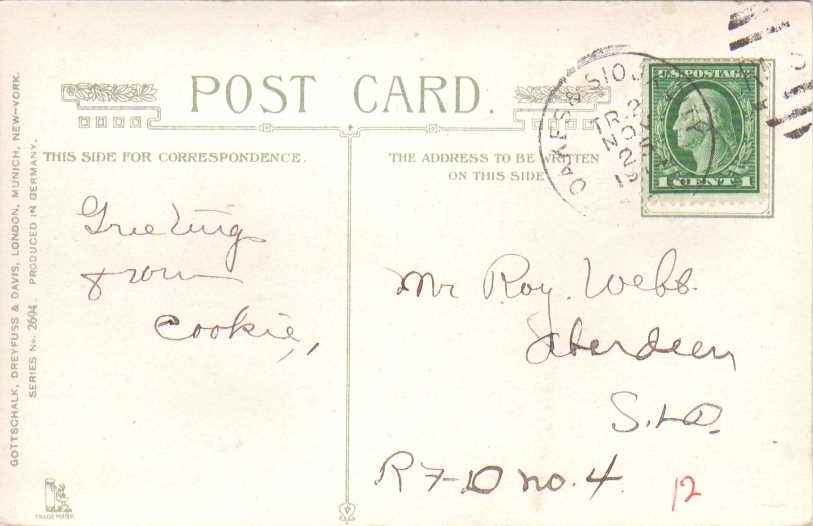 POST CARD.
THIS SIDE FOR CORRESPONDENCE.
THE ADDRESS TO BE WRITTEN
ON THIS SIDE
U.S. POSTAGE
1 CENT 1
OAKES &
TR. 2
NOV
Greetings
from
Cookie,
Mr Roy. Webb.
Aberdeen
S.D.
R F D no. 4.
12
GOTTSCHALK, DREYFUSS & DAVIS, LONDON, MUNICH, NEW-YORK.
SERIES No. 2694. PRODUCED IN GERMANY.
TRADE MARK